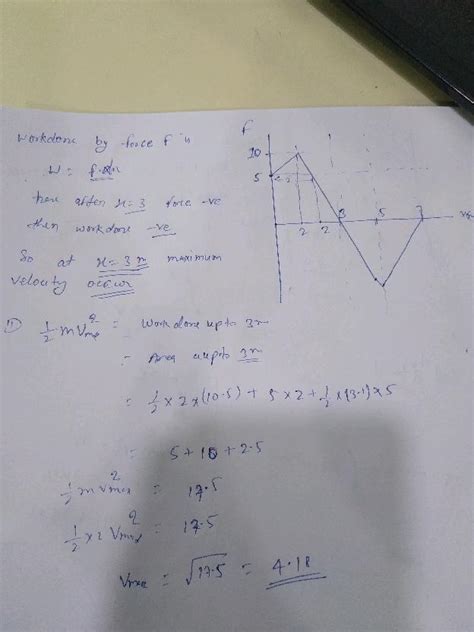 Workdone by force F is
W = F.dx
here after x=3 force -ve
then workdone -ve
So at x=3m maximum
velocity occur
F
10
5
2
2
3
5
7
① ½ m Vmax² = Workdone upto 3m
= Area upto 3m
= ½ × 2 × (10-5) + 5 × 2 + ½ × (3-1) × 5
= 5 + 10 + 2.5
½ m Vmax² = 17.5
½ × 2 Vmax² = 17.5
Vmax = √17.5 = 4.18